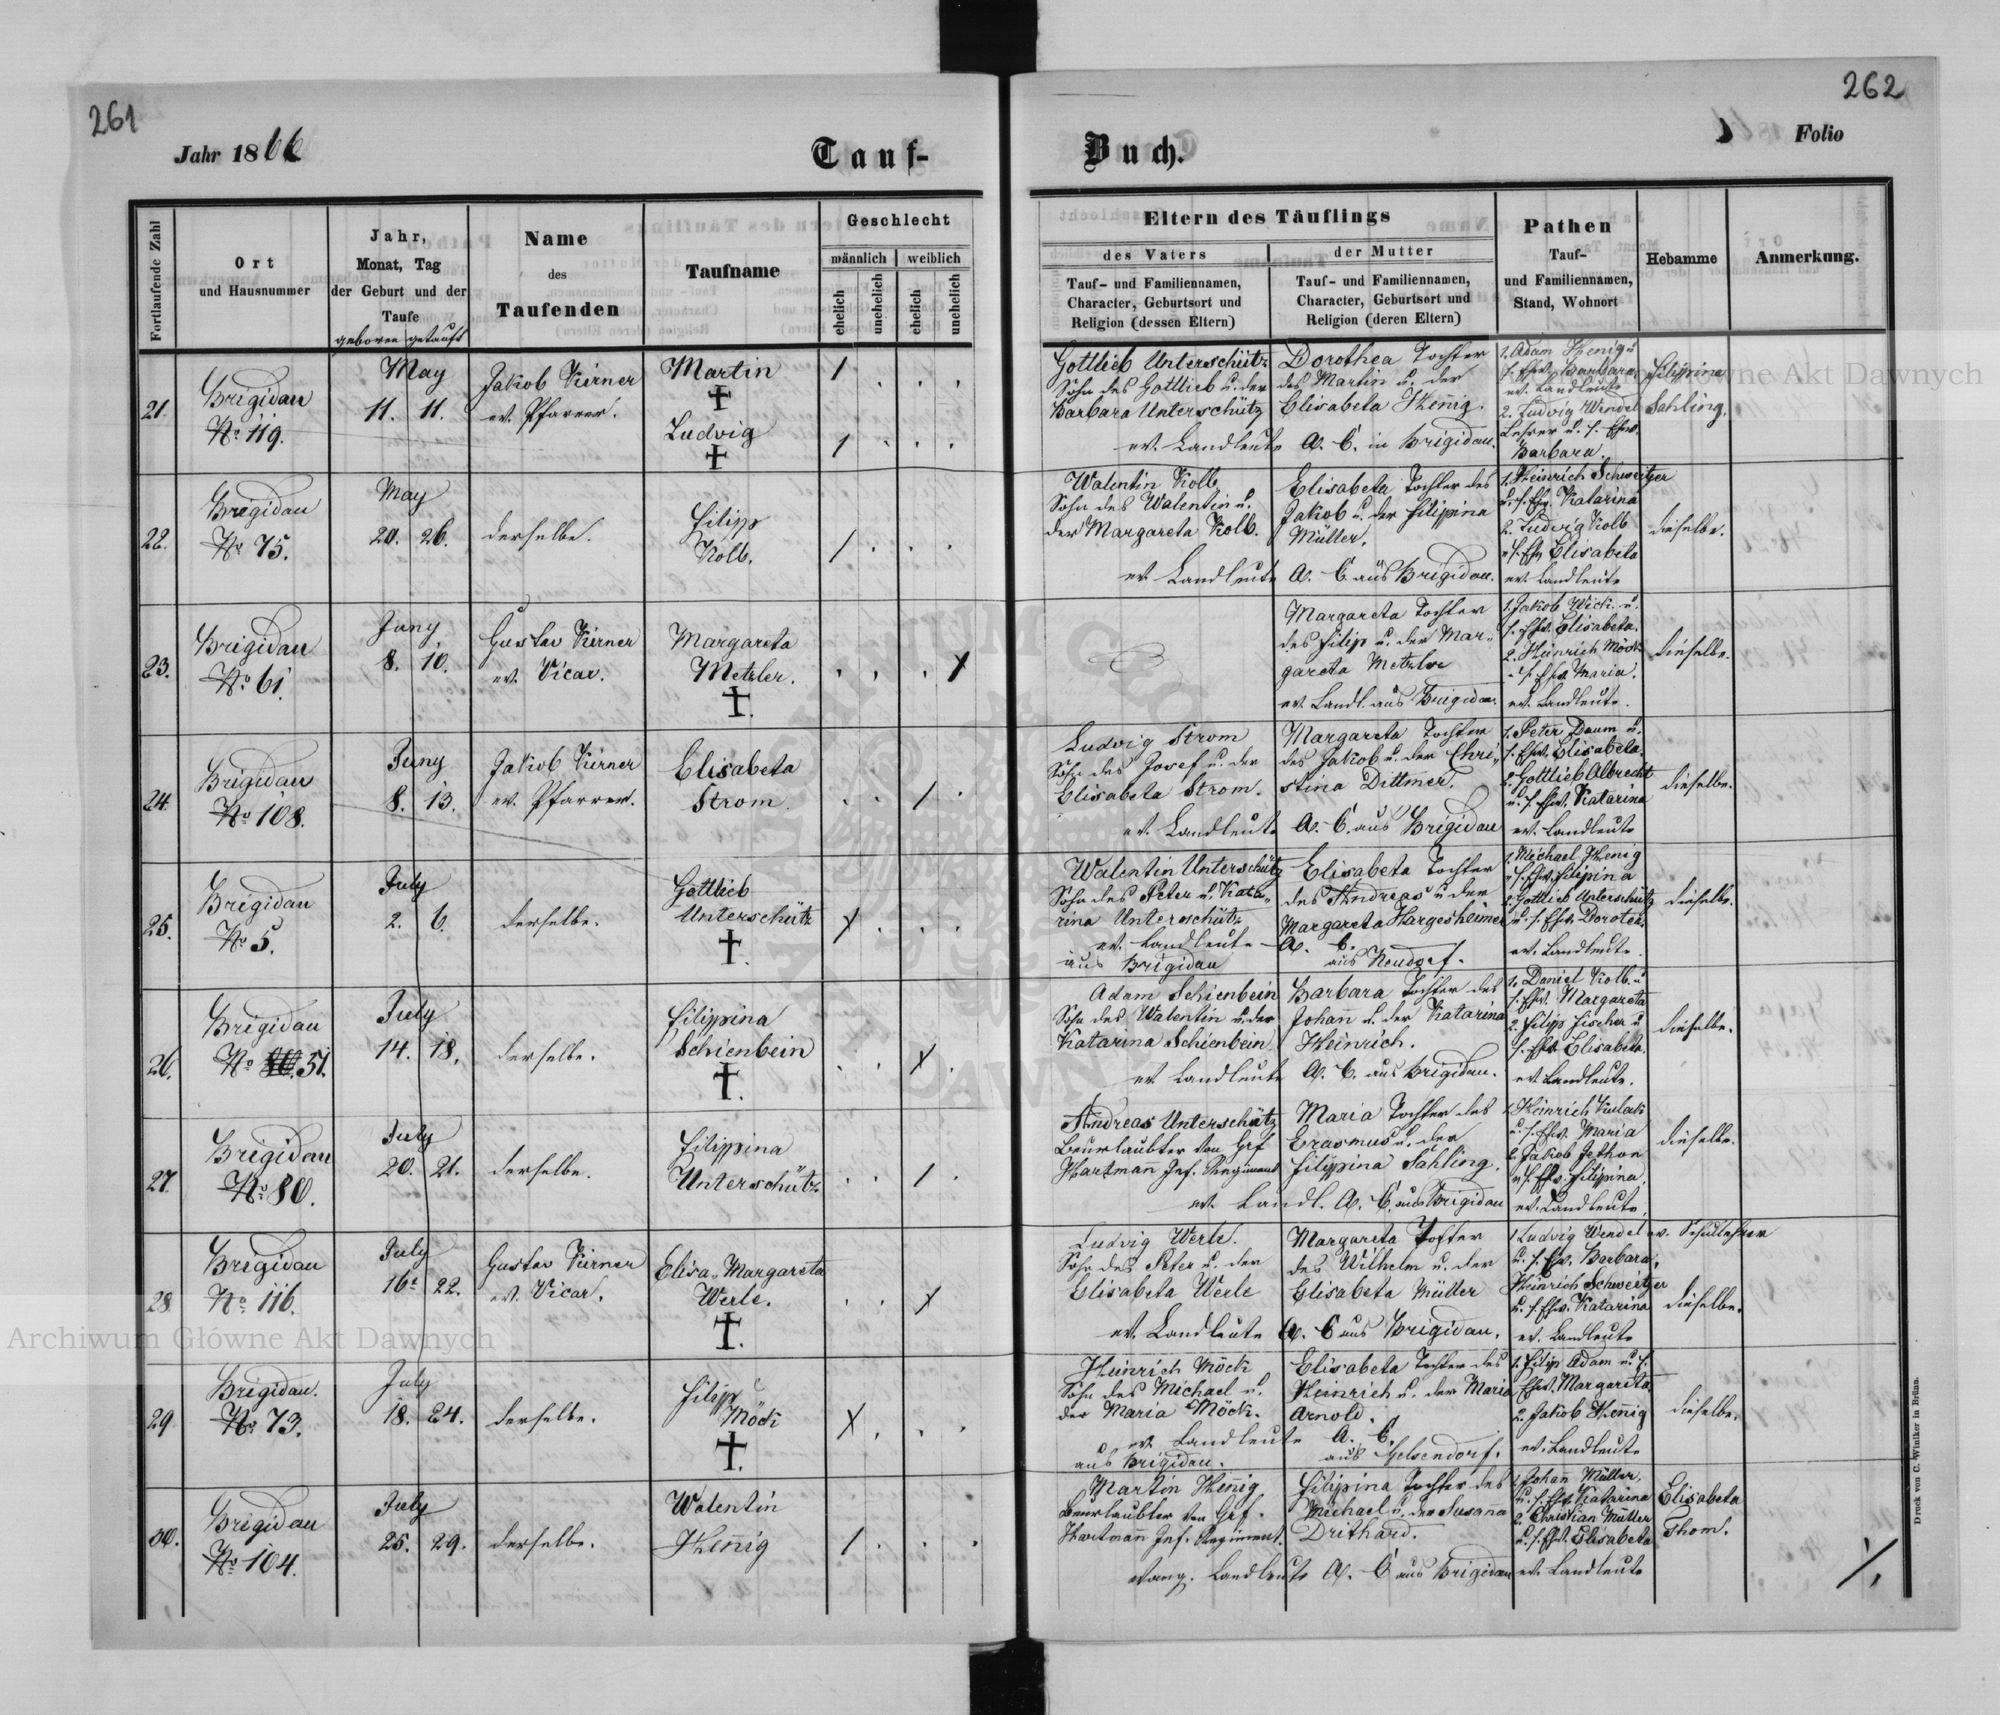 261
262
Jahr 1866
Tauf-
Buch.
Folio
Fortlaufende Zahl
Ort
und Hausnummer
Jahr,
Monat, Tag
der Geburt und der
Taufe
geboren getauft
Name
des
Taufenden
Taufname
Geschlecht
männlich
weiblich
ehelich
unehelich
ehelich
unehelich
Eltern des Täuflings
des Vaters
Tauf- und Familiennamen,
Character, Geburtsort und
Religion (dessen Eltern)
der Mutter
Tauf- und Familiennamen,
Character, Geburtsort und
Religion (deren Eltern)
Pathen
Tauf-
und Familiennamen,
Stand, Wohnort
Hebamme
Anmerkung.
21.
Brigidau
No 119.
May
11. 11.
Jakob Kierner
ev. Pfarrer.
Martin
Ludvig
1
1
Gottlieb Unterschütz
Sohn des Gottlieb u. der
Barbara Unterschütz
ev. Landleute
Dorothea Tochter
des Martin u. der
Elisabeta Henig.
A. C. in Brigidau.
1. Adam Henig u
s. Ehw. Barbara
ev. Landleute
2. Ludvig Wendel
Lehrer u. s. Ehw.
Barbara.
Filippina
Sahling.
22.
Brigidau
No 75.
May
20. 26.
derselbe.
Filipp
Kolb.
1
Walentin Kolb
Sohn des Walentin u.
der Margareta Kolb.
ev. Landleute
Elisabeta Tochter des
Jakob u. der Filippina
Müller.
A. C. aus Brigidau.
1. Heinrich Schweitzer
u. s. Ehw. Katarina
2. Ludvig Kolb
u s. Ehw Elisabeta
ev. Landleute
dieselbe.
23.
Brigidau
No 61.
Juny
8. 10.
Gustav Kierner
ev. Vicar.
Margareta
Metzler.
Margareta Tochter
des Filip u. der Mar-
gareta Metzler
ev. Landl. aus Brigidau.
1. Jakob Wick u.
s. Ehw. Elisabeta.
2. Heinrich Möck
u s. Ehw. Maria.
ev. Landleute.
dieselbe.
24.
Brigidau
No 108.
Juny
8. 13.
Jakob Kierner
ev. Pfarrer.
Elisabeta
Strom.
1
Ludvig Strom
Sohn des Josef u. der
Elisabeta Strom.
ev. Landleute
Margareta Tochter
des Jakob u. der Chri-
stina Dittmer.
A. C. aus Brigidau
1. Peter Daum u.
s. Ehw. Elisabeta.
2. Gottlieb Albrecht
u. s. Ehw. Katarina
ev. Landleute
dieselbe.
25.
Brigidau
No 5.
July
2. 6.
derselbe.
Gottlieb
Unterschütz
Walentin Unterschütz
Sohn des Peter u. Kata-
rina Unterschütz
ev. Landleute
aus Brigidau
Elisabeta Tochter
des Andreas u der
Margareta Hargesheimer
A. C.
aus Neudorf.
1. Michael Henig
u s. Ehw. Filipina
2. Gottlieb Unterschütz
u. s. Ehw. Dorotea.
ev. Landleute.
dieselbe.
26.
Brigidau
No 51.
July
14. 18.
derselbe.
Filippina
Schienbein
Adam Schienbein
Sohn des Walentin u. der
Katarina Schienbein
ev. Landleute
Barbara Tochter des
Johan̄ u. der Katarina
Heinrich.
A. C. aus Brigidau.
1. Daniel Kolb u
s. Ehw. Margareta
2. Filipp Fischer u
s. Ehw Elisabeta.
ev. Landleute.
dieselbe.
27.
Brigidau
No 80.
July
20. 21.
derselbe.
Filippina
Unterschütz
1
Andreas Unterschütz
Beurlaubter von Grf
Hartman Inf. Regiment
ev. Landl.
Maria Tochter des
Erasmus u. der
Filippina Sahling.
A. C. aus Brigidau
1. Heinrich Kulak
u. s. Ehw. Maria
2. Jakob Jethon
u s Ehw. Filipina.
ev. Landleute.
dieselbe.
28
Brigidau
No 116.
July
16t 22.
Gustav Kierner
ev. Vicar.
Elisa-Margareta
Werle.
Ludvig Werle.
Sohn des Peter u. der
Elisabeta Werle
ev. Landleute
Margareta Tochter
des Wilhelm u. der
Elisabeta Müller
A. C aus Brigidau.
1 Ludvig Wendel ev. Schullehrer
u. s. Ehw. Barbara,
Heinrich Schweitzer
u. s. Ehw. Katarina
ev. Landleute
dieselbe.
29.
Brigidau.
No 73.
July
18. 24.
derselbe.
Filipp
Möck
Heinrich Möck
Sohn des Michael u.
der Maria Möck.
ev. Landleute
aus Brigidau.
Elisabeta Tochter des
Heinrich u. der Maria
Arnold.
A. C.
aus Gelsendorf.
1. Filip Adam u. s.
Ehw. Margareta
2. Jakob Hen̄ig
ev. Landleute
dieselbe.
30.
Brigidau
No 104.
July
25. 29.
derselbe.
Walentin
Hen̄ig
1
Martin Hen̄ig
Beurlaubter von Grf.
Hartman̄ Inf. Regiment.
evang. Landleute
Filipina Tochter des
Michael u. der Susan̄a
Drithard.
A. C aus Brigidau
1. Johan̄ Müller,
u. s. Ehw Katarina
2. Christian Müller
u. s. Ehw. Elisabeta
ev. Landleute
Elisabeta
Thom.
Druck von C. Winiker in Brünn.
Archiwum Główne Akt Dawnych
Archiwum Główne Akt Dawnych